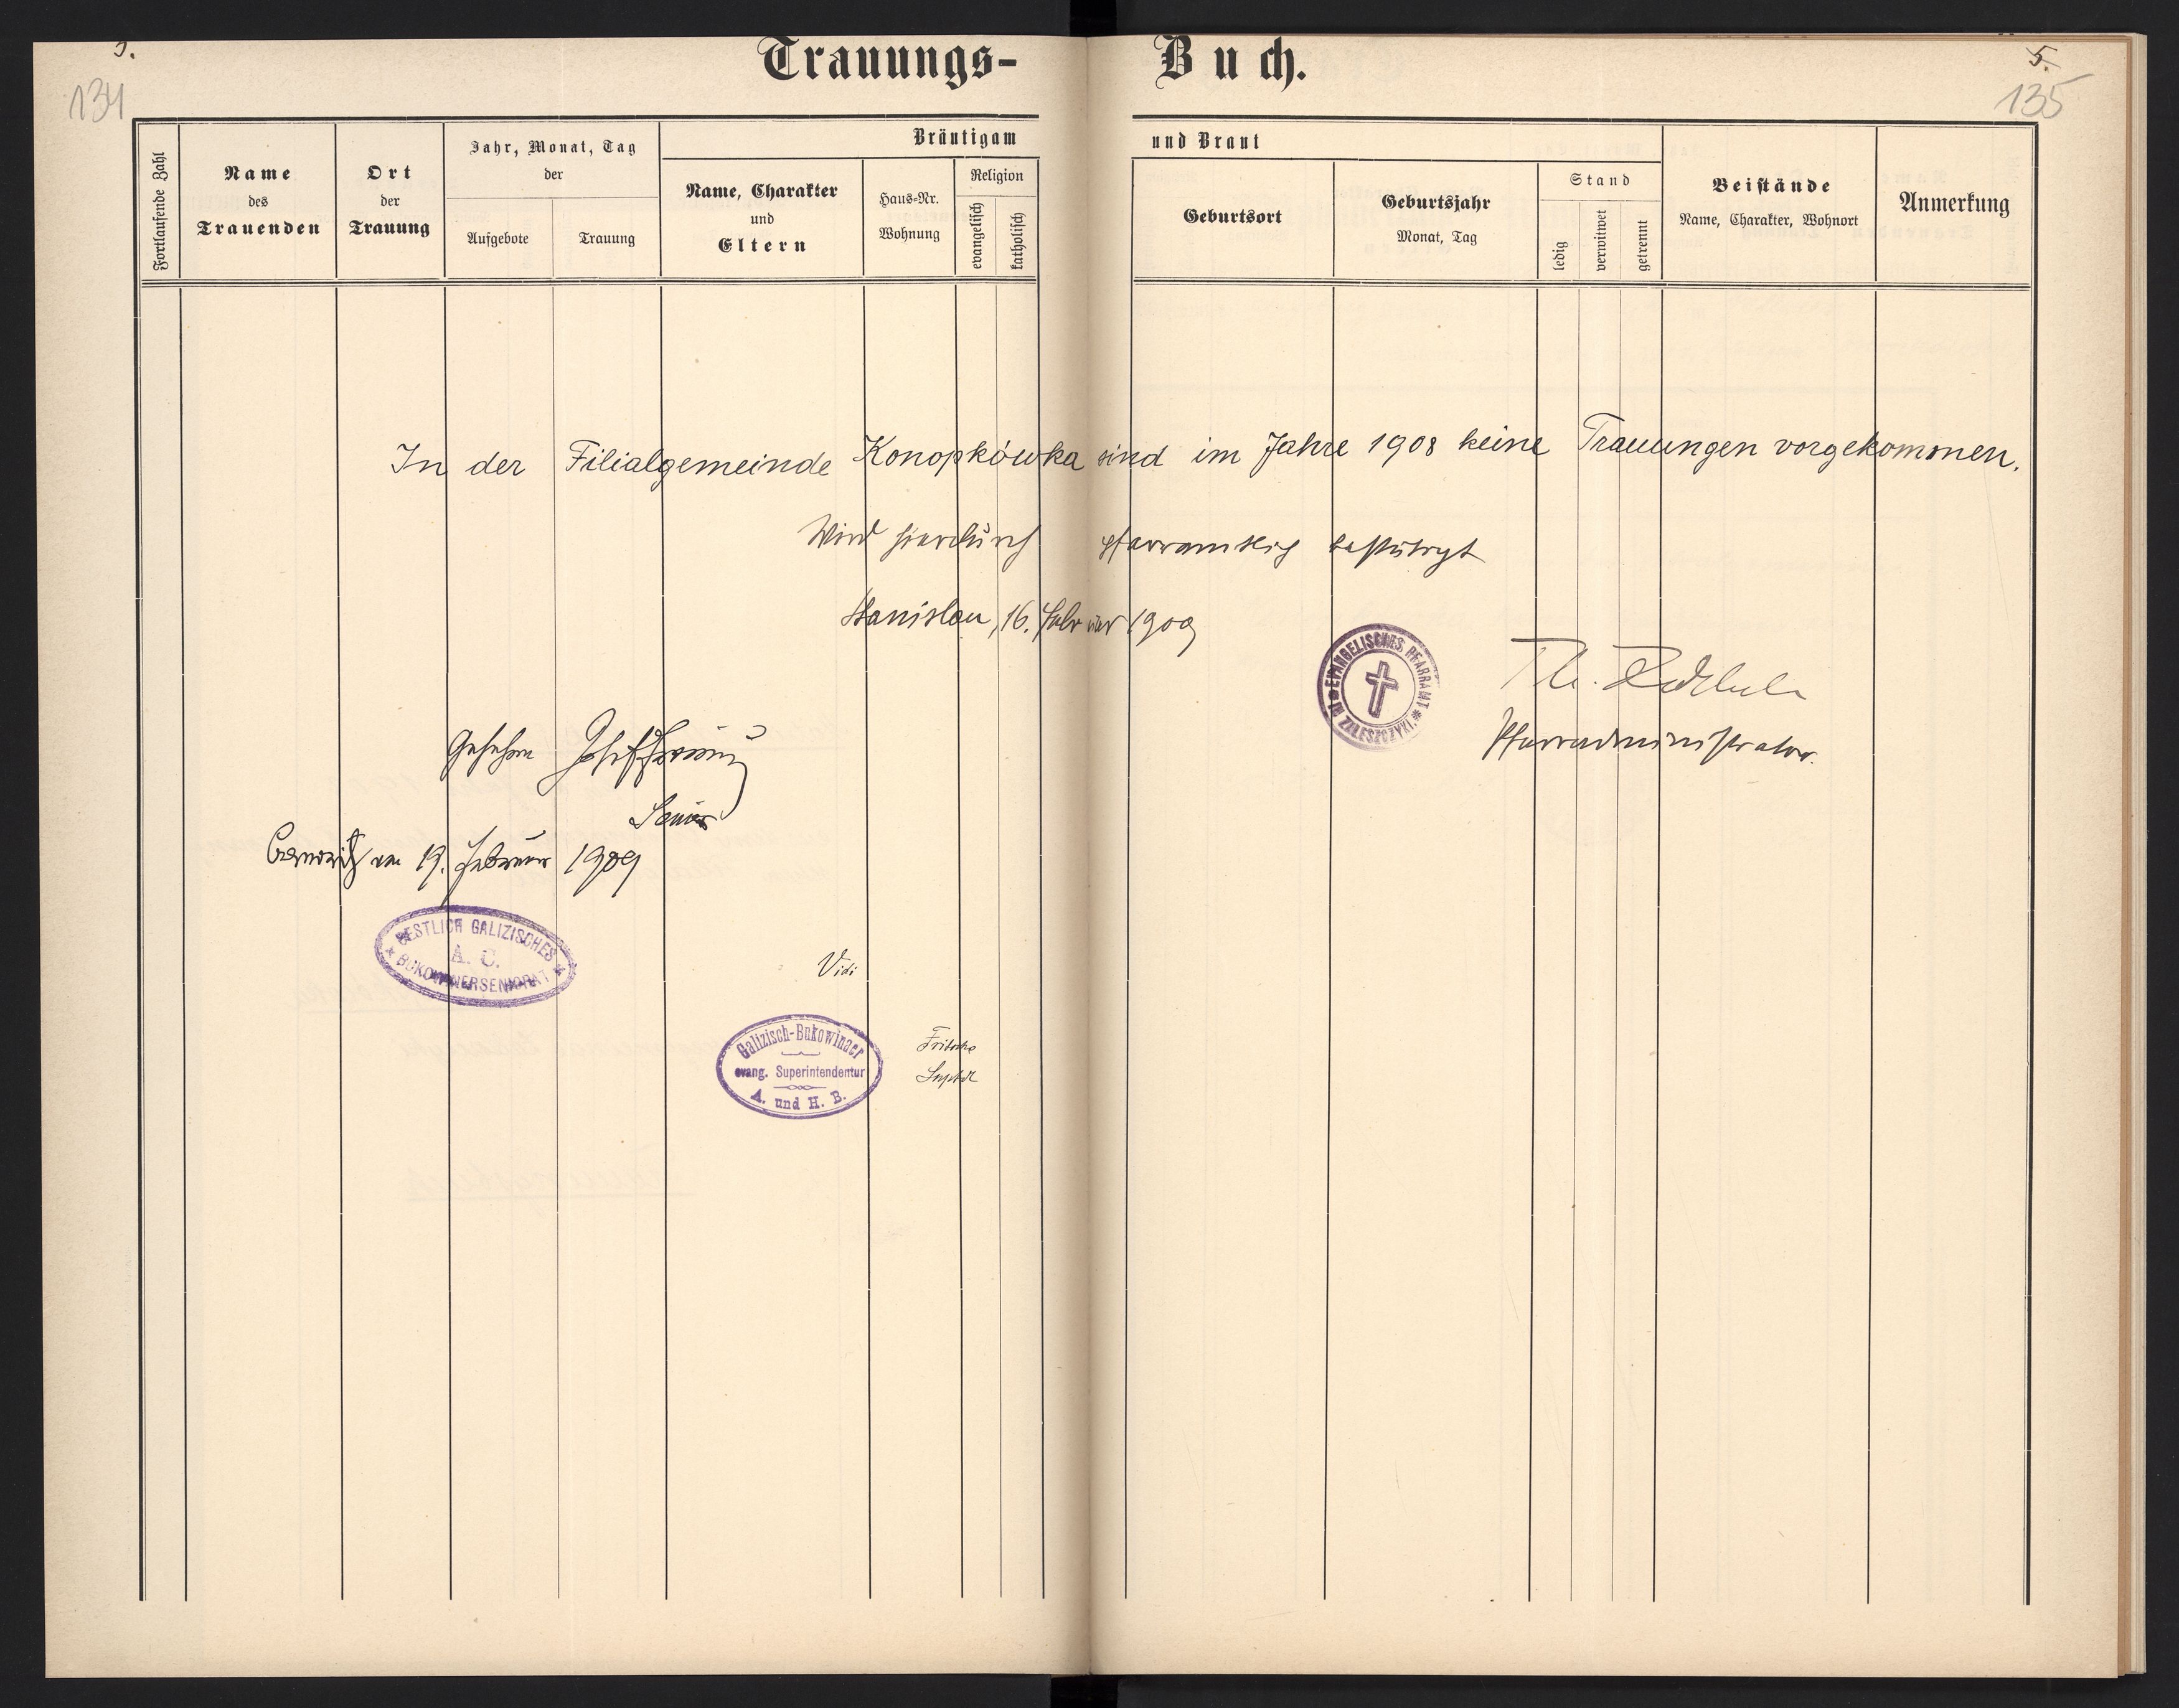 Trauungs-Buch.
5.
5.
134
135
Fortlaufende Zahl
Name
des
Trauenden
Ort
der
Trauung
Jahr, Monat, Tag
der
Aufgebote
Trauung
Bräutigam
und Braut
Name, Charakter
und
Eltern
Haus=Nr.
Wohnung
Religion
evangelisch
katholisch
Geburtsort
Geburtsjahr
Monat, Tag
Stand
ledig
verwitwet
getrennt
Beistände
Name, Charakter, Wohnort
Anmerkung
In der Filialgemeinde Konopkówka sind im Jahre 1908 keine Trauungen vorgekommen.
Wird hierdurch pfarramtlich bestätigt
Stanislau, 16. Februar 1909
EVANGELISCHES PFARRAMT
ZALESZCZYKI
Pfarradministrator.
Gesehen Josef
Senior
am 19. Februar 1909
OESTLICH GALIZISCHES
A. C.
BUKOWINERSENIORAT
Vidi
Galizisch-Bukowinaer
evang. Superintendentur
A. und H. B.
Fritsche
Supdt